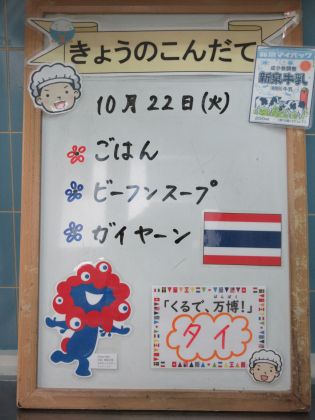 きょうのこんだて
10月22日(火)
ごはん
ビーフンスープ
ガイヤーン
新泉牛乳
「くるで、万博!」
ばんぱく
タイ